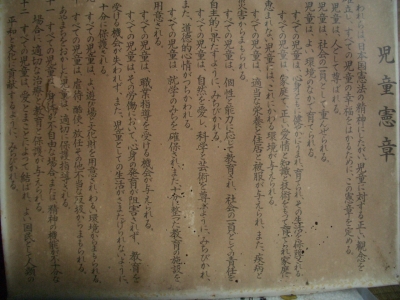 児童憲章
われらは、日本国憲法の精神にしたがい、児童に対する正しい観念を
すべての児童の幸福をはかるために、この憲章を定める。
児童は、人として尊ばれる。
児童は、社会の一員として重んぜられる。
児童は、よい環境のなかで育てられる。
すべての児童は、心身ともに、健やかにうまれ、育てられ、その生活を保障される。
すべての児童は、家庭で、正しい愛情と知識と技術をもって育てられ、家庭に
恵まれない児童には、これにかわる環境が与えられる。
すべての児童は、適当な栄養と住居と被服が与えられ、また、疾病と
災害からまもられる。
すべての児童は、個性と能力に応じて教育され、社会の一員としての責任を
自主的に果たすように、みちびかれる。
すべての児童は、自然を愛し、科学と芸術を尊ぶように、みちびかれ、
また、道徳的心情がつちかわれる。
すべての児童は、就学のみちを確保され、また、十分に整った教育の施設を
用意される。
すべての児童は、職業指導を受ける機会が与えられる。
すべての児童は、その労働において、心身の発育が阻害されず、教育を
受ける機会が失われず、また、児童としての生活がさまたげられないように、
十分に保護される。
すべての児童は、よい遊び場と文化財を用意され、わるい環境からまもられる。
すべての児童は、虐待、酷使、放任その他不当な取扱からまもられる。
あやまちをおかした児童は、適切に保護指導される。
十一 すべての児童は、身体が不自由な場合、または精神の機能が不十分な
場合に、適切な治療と教育と保護が与えられる。
十二 すべての児童は、愛とまことによって結ばれ、よい国民として人類の
平和と文化に貢献するように、みちびかれる。